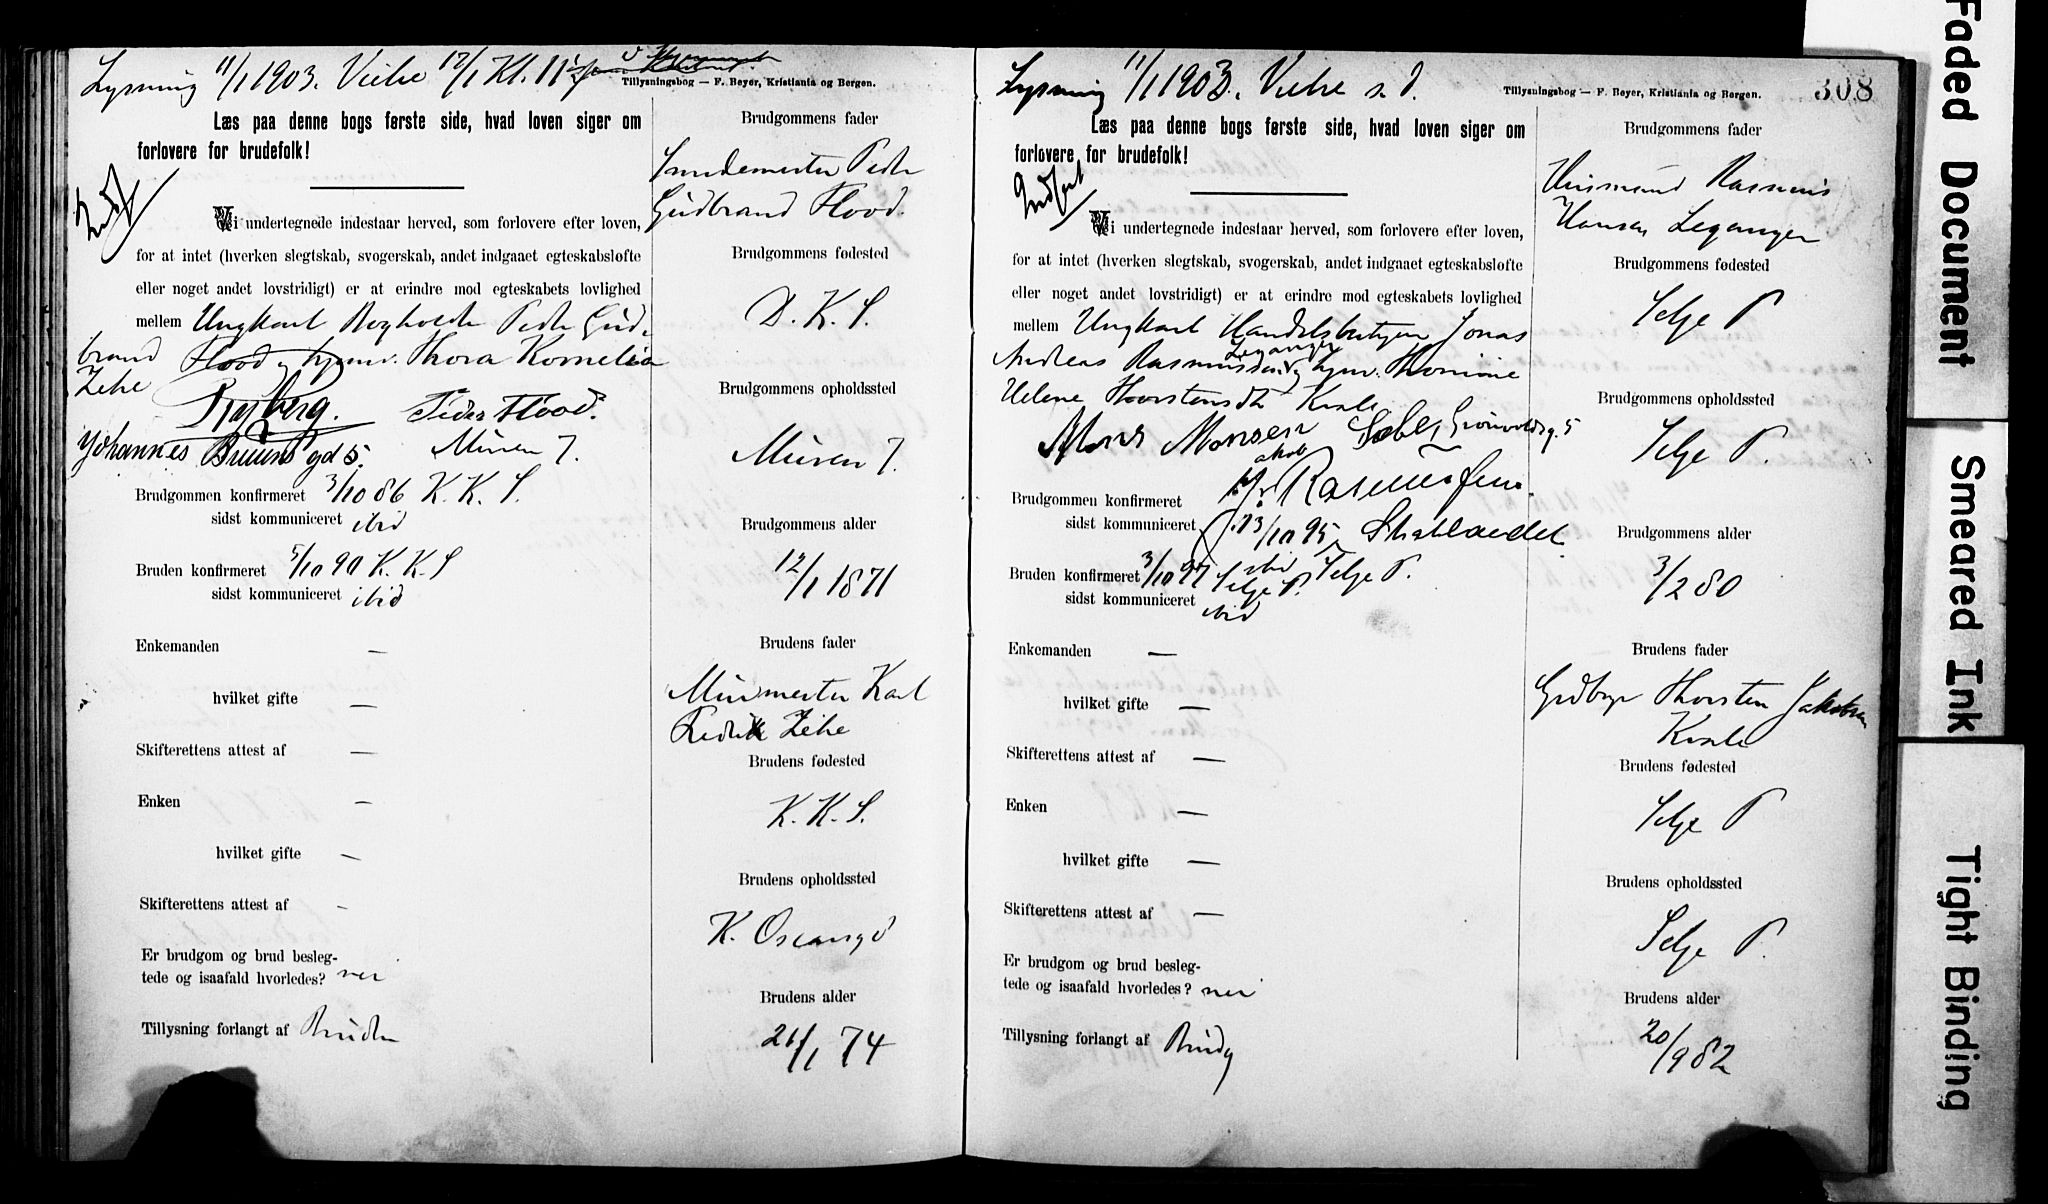 Lysning 11/1 1903. Vielse 12/1 Kl. 11
Tillysningsbog — F. Beyer, Kristiania og Bergen.
Læs paa denne bogs første side, hvad loven siger om
forlovere for brudefolk!
Indf
Vi undertegnede indestaar herved, som forlovere efter loven,
for at intet (hverken slegtskab, svogerskab, andet indgaaet egteskabsløfte
eller noget andet lovstridigt) er at erindre mod egteskabets lovlighed
mellem Ungkarl Bogholder Peder Gud-
brand Flood og hpmv. Thora Kornelia
Zehe
Peder Flood.
Johannes Bruuns gd 5. Muren 7.
Brudgommen konfirmeret 3/10 86 K. K. S.
sidst kommuniceret ibid
Bruden konfirmeret 5/10 90 K. K. S
sidst kommuniceret ibid
Enkemanden —
hvilket gifte —
Skifterettens attest af —
Enken —
hvilket gifte —
Skifterettens attest af —
Er brudgom og brud besleg-
tede og isaafald hvorledes? nei
Tillysning forlangt af Bruden
Brudgommens fader
Smedemester Peder
Gudbrand Flood.
Brudgommens fødested
D. K. S.
Brudgommens opholdssted
Muren 7.
Brudgommens alder
12/1 1871
Brudens fader
Murmester Karl
Fredrik Zehe
Brudens fødested
K. K. S.
Brudens opholdssted
K. Oscarsgd
Brudens alder
26/1 74
Lysning 11/1 1903. Vielse s. d.
Tillysningsbog — F. Beyer, Kristiania og Bergen.
308
Læs paa denne bogs første side, hvad loven siger om
forlovere for brudefolk!
Indført
Vi undertegnede indestaar herved, som forlovere efter loven,
for at intet (hverken slegtskab, svogerskab, andet indgaaet egteskabsløfte
eller noget andet lovstridigt) er at erindre mod egteskabets lovlighed
mellem Ungkarl Handelsbetjen Jonas
Andreas Rasmussen Leganger og hpmv. Thomine
Helene Thorstensdtr Kvale
Mons Monsen Sæbe, Grønvoldsg. 5
Jakob Rasmussen.
Brudgommen konfirmeret
sidst kommuniceret
13/10 95 Statlandet
ibid Selje P.
Bruden konfirmeret 3/10 97 Selje P.
sidst kommuniceret ibid
Enkemanden —
hvilket gifte —
Skifterettens attest af —
Enken —
hvilket gifte —
Skifterettens attest af —
Er brudgom og brud besleg-
tede og isaafald hvorledes? nei
Tillysning forlangt af Brudg
Brudgommens fader
Husmand Rasmus
Hansen Leganger
Brudgommens fødested
Selje P
Brudgommens opholdssted
Selje P.
Brudgommens alder
3/2 80
Brudens fader
Grdbrgr Thorsten Jakobsen
Kvale
Brudens fødested
Selje P
Brudens opholdssted
Selje P.
Brudens alder
20/9 82
Faded Document
Smeared Ink
Tight Binding